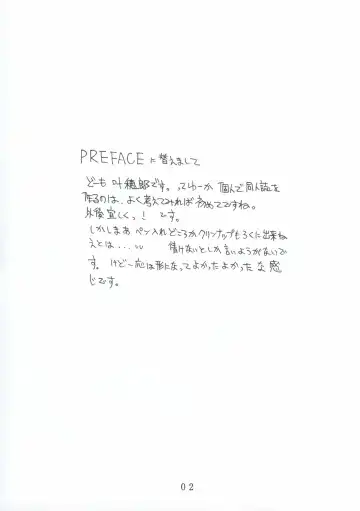 PREFACEに替えまして
どーも 叶穂郎です。ってゆーか 個人で同人誌を
作るのは、よく考えてみれば初めてですね。
以後宜しくっ! です。
しかしまあ ペン入れどころかクリンナップもろくに出来ね
えとは・・・、、 情けないとしか言いようがないで
す。けど一応は形になってよかったよかった な感
じです。
02